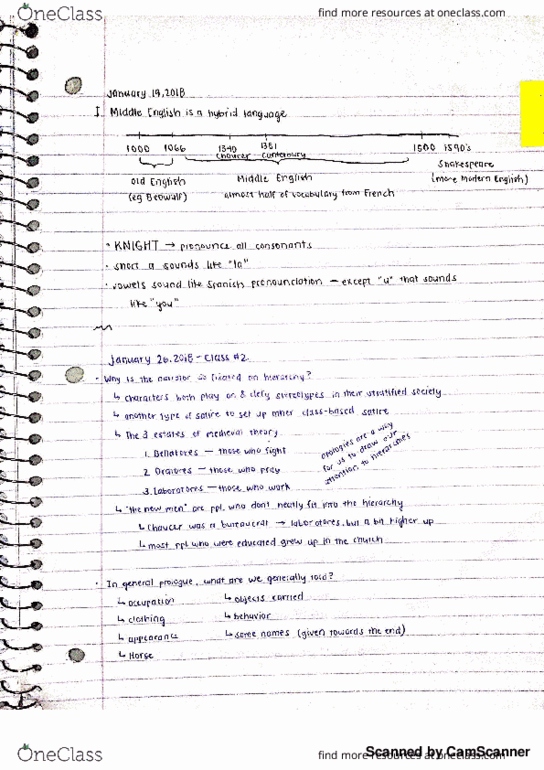 OneClass
find more resources at oneclass.com
January 19, 2018
I. Middle English is a hybrid language
1000 1066 1340 1381 1500 1590's
Chaucer Canterbury
Shakespeare
old English Middle English (more modern English)
(eg Beowulf) almost half of vocabulary from French
· KNIGHT → pronounce all consonants
· short a sounds like "la"
· vowels sound like Spanish pronounciation – except "u" that sounds
like "you"
January 26, 2018 - Class #2
· Why is the narrator so fixated on hierarchy?
↳ characters both play on & defy stereotypes in their stratified society
↳ another type of satire to set up other class-based satire
↳ The 3 estates of medieval theory
1. Bellatores — those who fight
2. Oratores — those who pray
3. Laboratores — those who work
apologies are a way
for us to draw our
attention to hierarchies
↳ "the new men" are ppl. who don't neatly fit into the hierarchy
↳ Chaucer was a bureaucrat → laboratores, but a bit higher up
↳ most ppl. who were educated grew up in the church
· In general prologue, what are we generally told?
↳ occupation ↳ objects carried
↳ clothing ↳ behavior
↳ appearance ↳ some names (given towards the end)
↳ Horse
OneClass
find more resources at oneclass.com
Scanned by CamScanner